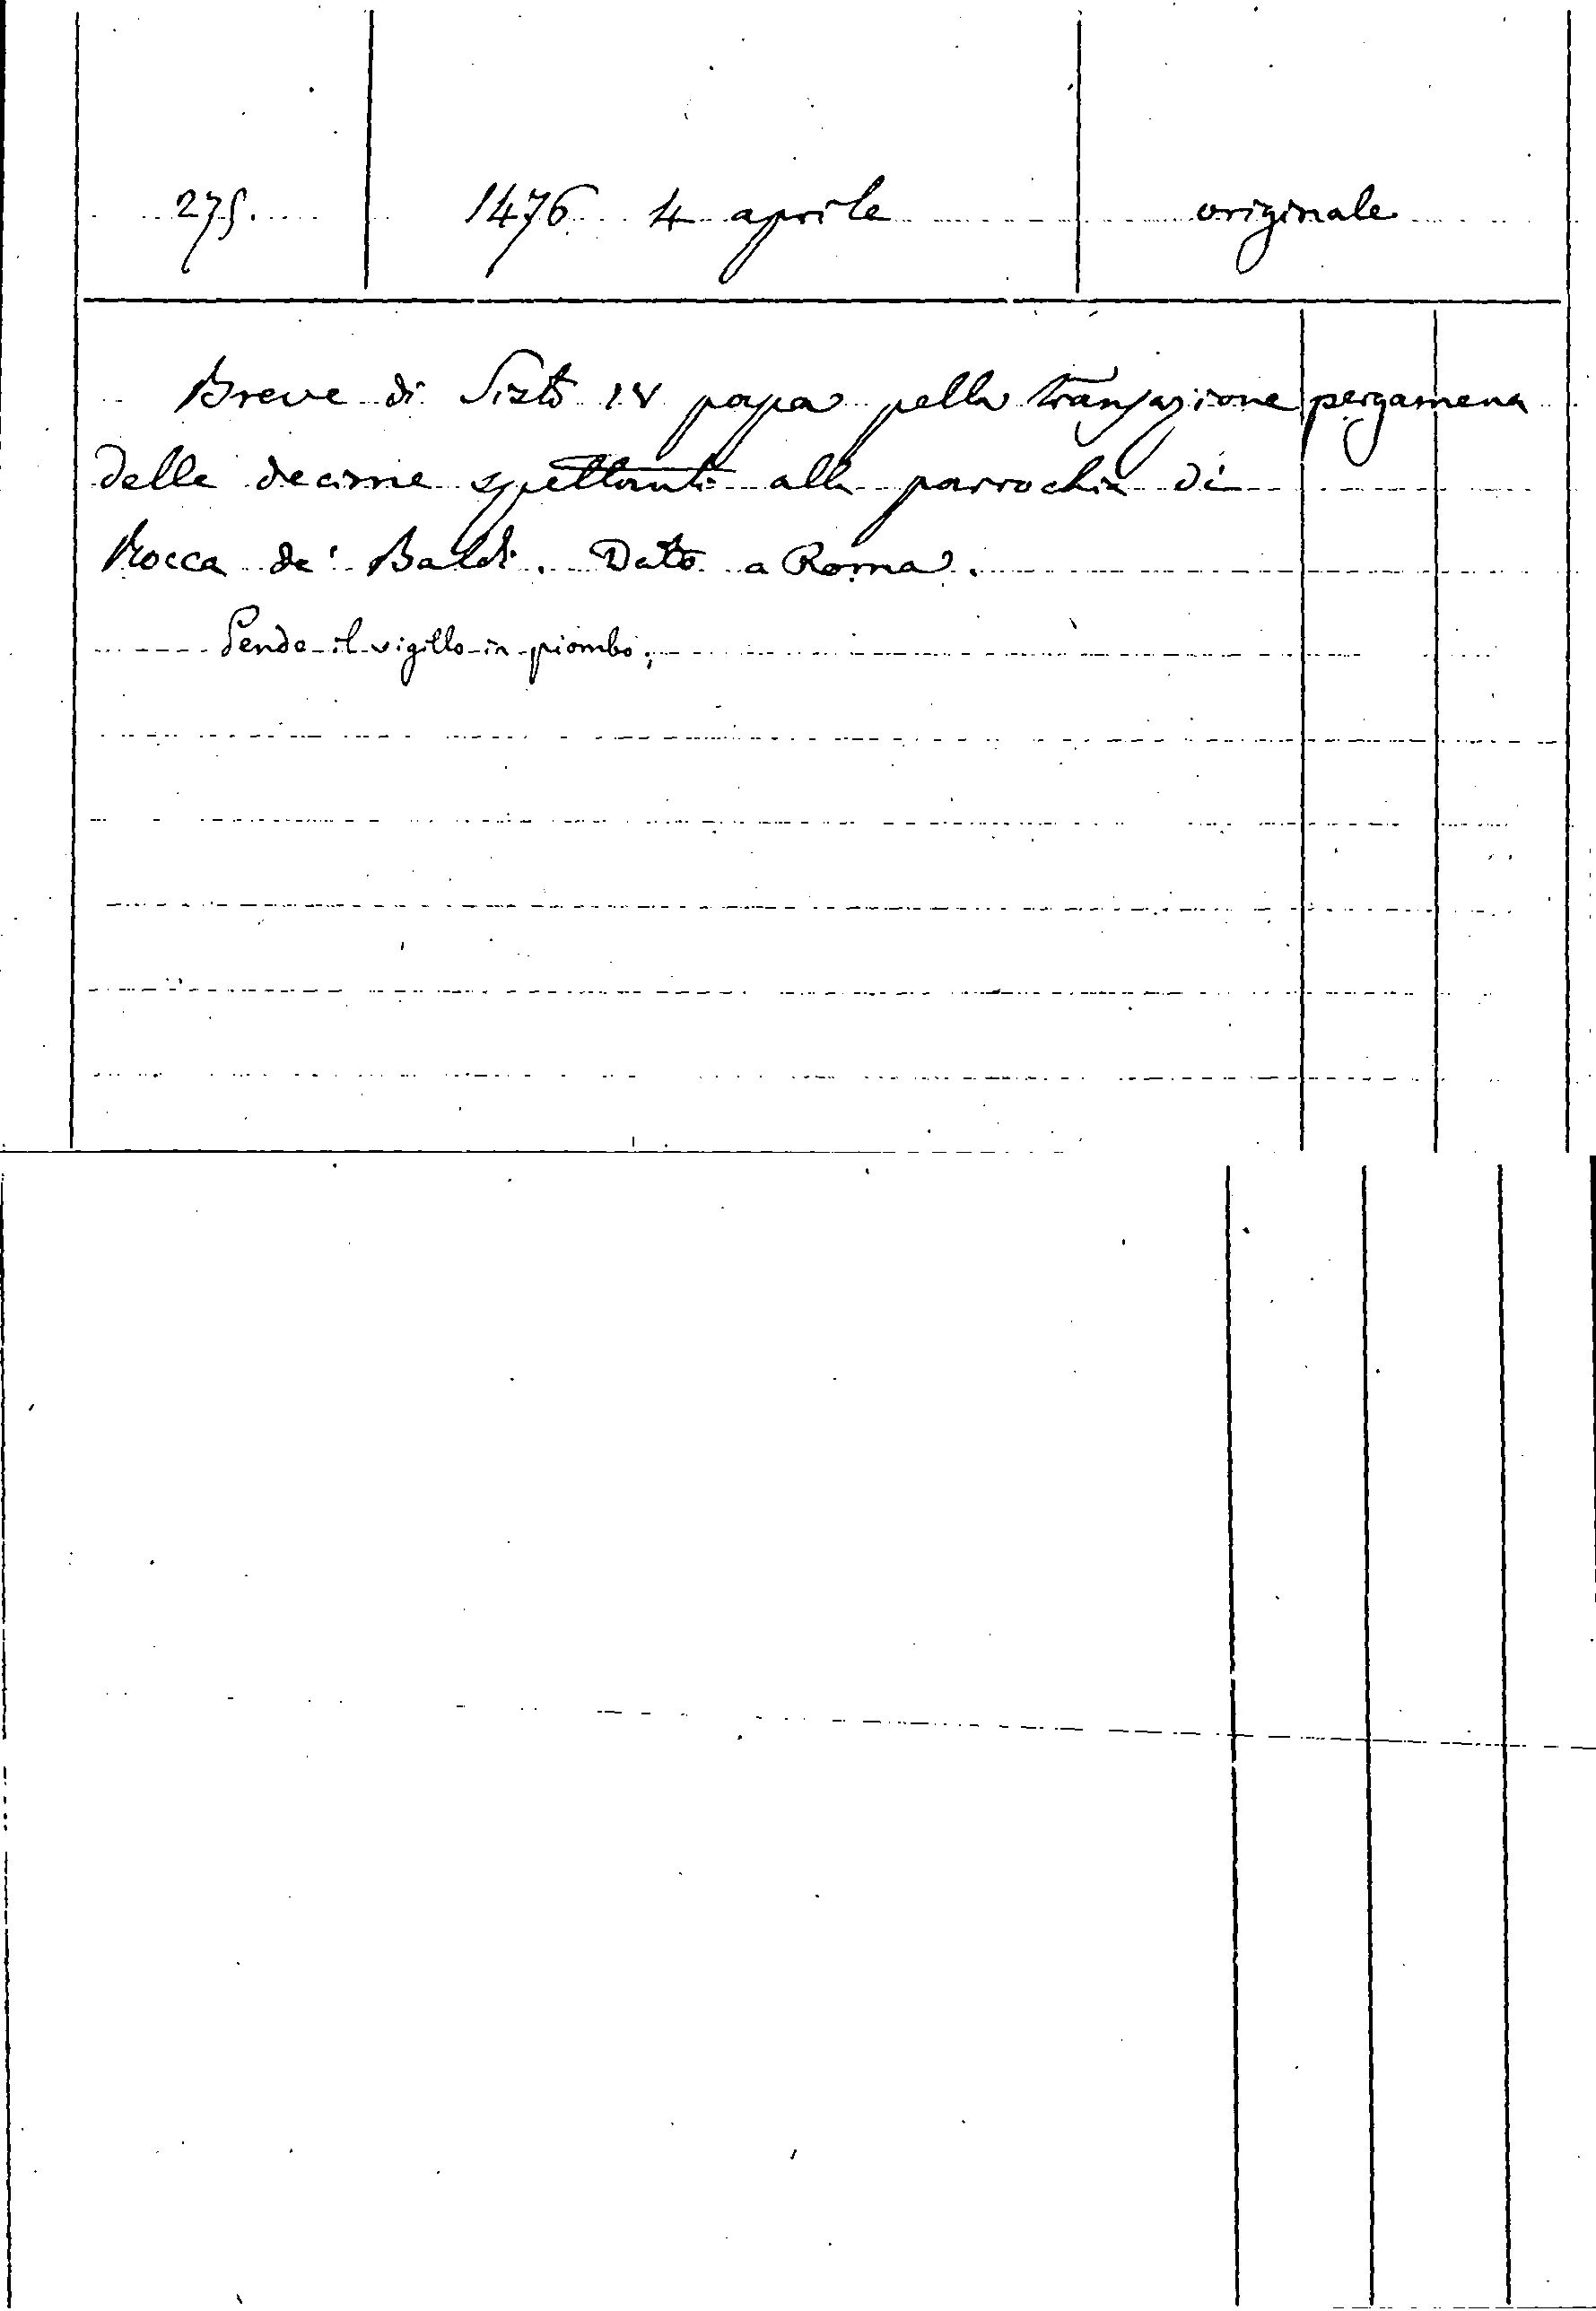 275. 1476 4 aprile originale
Breve di Sisto IV papa pella transazione pergamena
delle decime spettanti alla parrochia di
Rocca de' Baldi. Dato a Roma.
Pende il sigillo in piombo.